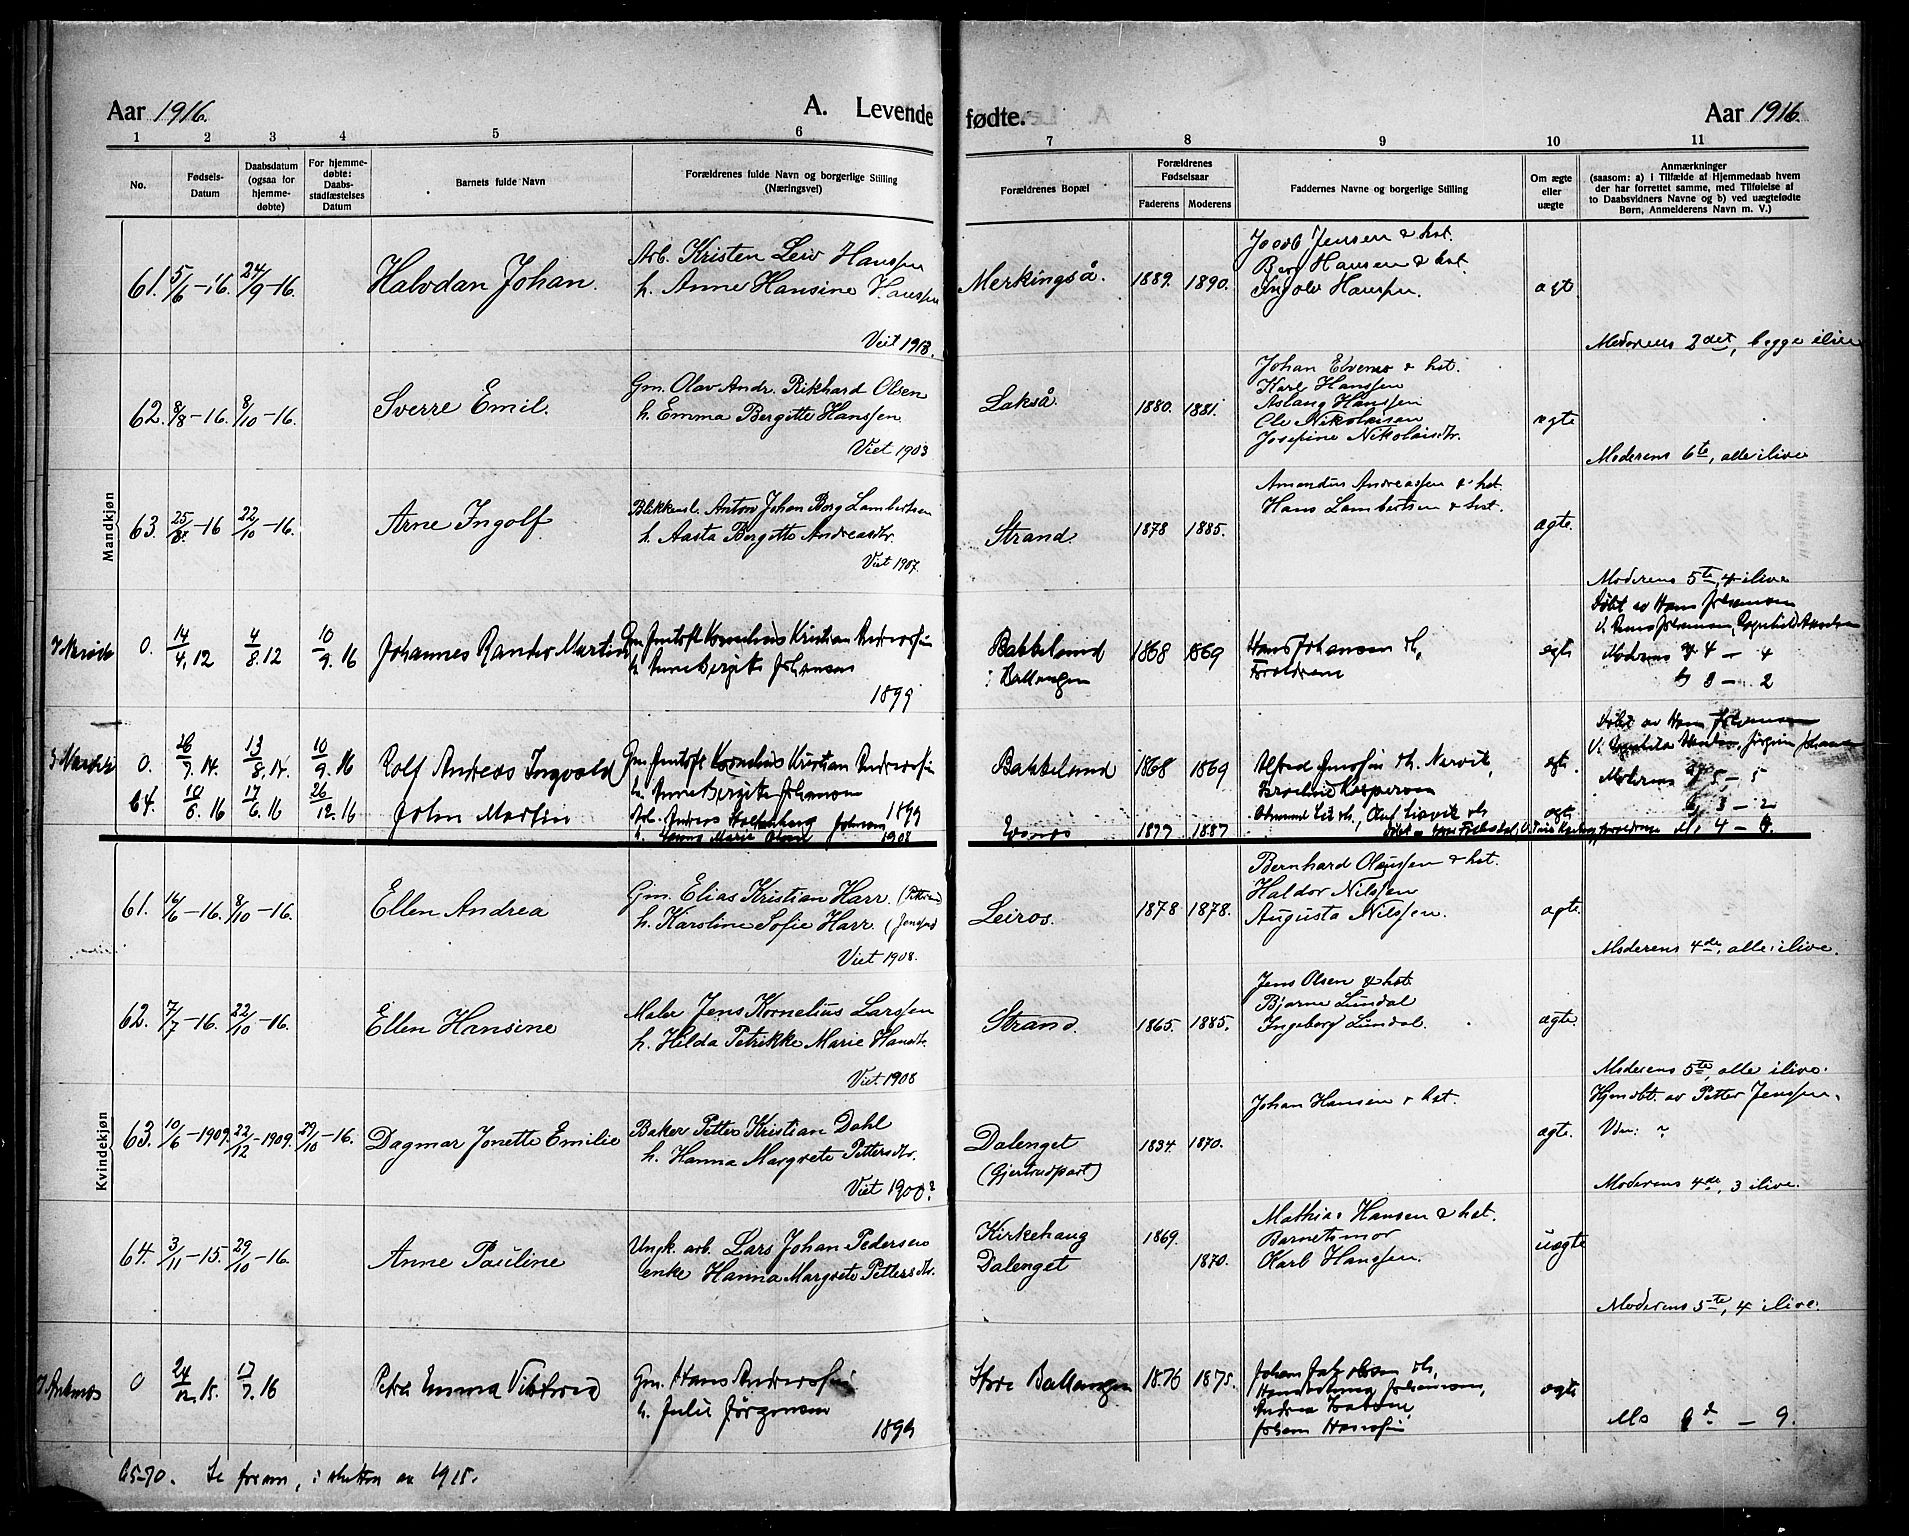 Aar 1916.
A. Levende
fødte.
Aar 1916.
1 2 3 4 5 6 7 8 9 10 11
No.
Fødsels-
Datum
Daabsdatum
(ogsaa for
hjemme-
døbte)
For hjemme-
døbte:
Daabs-
stadfæstelses
Datum
Barnets fulde Navn
Forældrenes fulde Navn og borgerlige Stilling
(Næringsvei)
Forældrenes Bopæl
Forældrenes
Fødselsaar
Faderens Moderens
Faddernes Navne og borgerlige Stilling
Om ægte
eller
uægte
Anmærkninger
(saasom: a) i Tilfælde af Hjemmedaab hvem
der har forrettet samme, med Tilføielse af
to Daabsvidners Navne og b) ved uægtefødte
Børn, Anmelderens Navn m. V.)
Mandkjøn
61. 5/6-16. 24/9-16. Halvdan Johan.
Arb. Kristen Leiv Hanssen
h. Anne Hansine Hanssen
Viet 1913.
Merkingså. 1889. 1890.
Jacob Jensen & hst.
Berg Hansen & hst.
Ingolv Hanssen.
ægt
Moderens 2det, begge ilive
62. 8/8-16. 8/10-16. Sverre Emil.
Gm. Olav Andr. Rikhard Olsen
h. Emma Bergitte Hanssen.
Viet 1903
Lakså. 1880. 1881.
Johan Elvenes & hst.
Karl Hanssen
Aslaug Hanssen
Ole Nikolaisen
Josefine Nikolaisdtr.
ægte
Moderens 6te, alle ilive
63. 25/8-16 22/10-16. Arne Ingolf
Blikkensl. Anton Johan Borg Lambertsen
h. Aasta Bergitte Andreasdtr.
Viet 1907.
Strand. 1878 1885.
Amandus Andreassen & hst.
Hans Lambertsen & hst.
ægte.
Moderens 5te, 4 ilive
0. 14/4.12 4/8.12 10/9.16 Johannes Rander Martin
Gm. Kornelius Kristian Anderssen
h. Anne Bergitte Johansen
1899
Bakkeland
i Ballangen
1868 1869
Hans Johansen
Foreldrene
ægte
Døbt av Hans Johansen
Moderens 4 - 4
3 - 2
0. 26/7.14. 13/8.14. 10/9.16 Rolf Andreas Ingvald
Gm. Kornelius Kristian Anderssen
h. Anne Bergitte Johansen
1899
Bakkeland 1868 1869
Alfred Narvik,
ægte
Døbt av Hans Johansen
Moderens 5 - 5
3 - 2
64. 10/6.16 17/6.16 26/12.16 John Martin
Arb. Andreas Johnsen
h. Marie Olsen 1908
Evenes 1877 1887
ægte
M. 4 -
Kvindekjøn
61. 16/6-16. 8/10-16. Ellen Andrea
Gm. Elias Kristian Harr.
h. Karoline Sofie Harr.
Viet 1908.
Leiros. 1878 1878.
Bernhard Olaussen & hst.
Haldor Nilssen
Augusta Nilssen.
ægte
Moderens 4de, alle ilive.
62. 7/7-16. 22/10-16. Ellen Hansine
Maler Jens Kornelius Larssen
h. Hilda Petrikke Marie Hansdtr.
Viet 1908
Strand. 1865. 1885.
Jens Olsen & hst.
Bjarne Lundal
Ingeborg Lundal.
ægte.
Moderens 5te, alle ilive.
63. 10/6-1909. 22/12-1909. 29/10-16. Dagmar Jonette Emilie
Baker Petter Kristian Dahl
h. Hanna Margrete Pettersdtr.
Viet 1900?
Dalenget
(Gjertrudpart)
1834. 1870.
Johan Hansen & hst.
ægte.
Hjmdbt. av Petter Jenssen.
Vidn: ?
Moderens 4de, 3 ilive.
64. 3/11-15. 29/10-16. Anne Pauline
Ungk. arb. Lars Johan Pedersen
enke Hanna Margrete Pettersdtr.
Kirkehaug
Dalenget
1869.
1870.
Mathias Hansen & hst.
Barnets mor
Karl Hanssen.
uægte
Moderens 5te, 4 ilive.
0 24/12.15. 17/7.16 Petra Emma Viktoria
Gm. Hans Anderssen
h. Julie Jørgensen
1899
Store Ballangen 1876 1875.
ægte
Mo 9d - 9.
65-70. Se foran, i slutten av 1915.